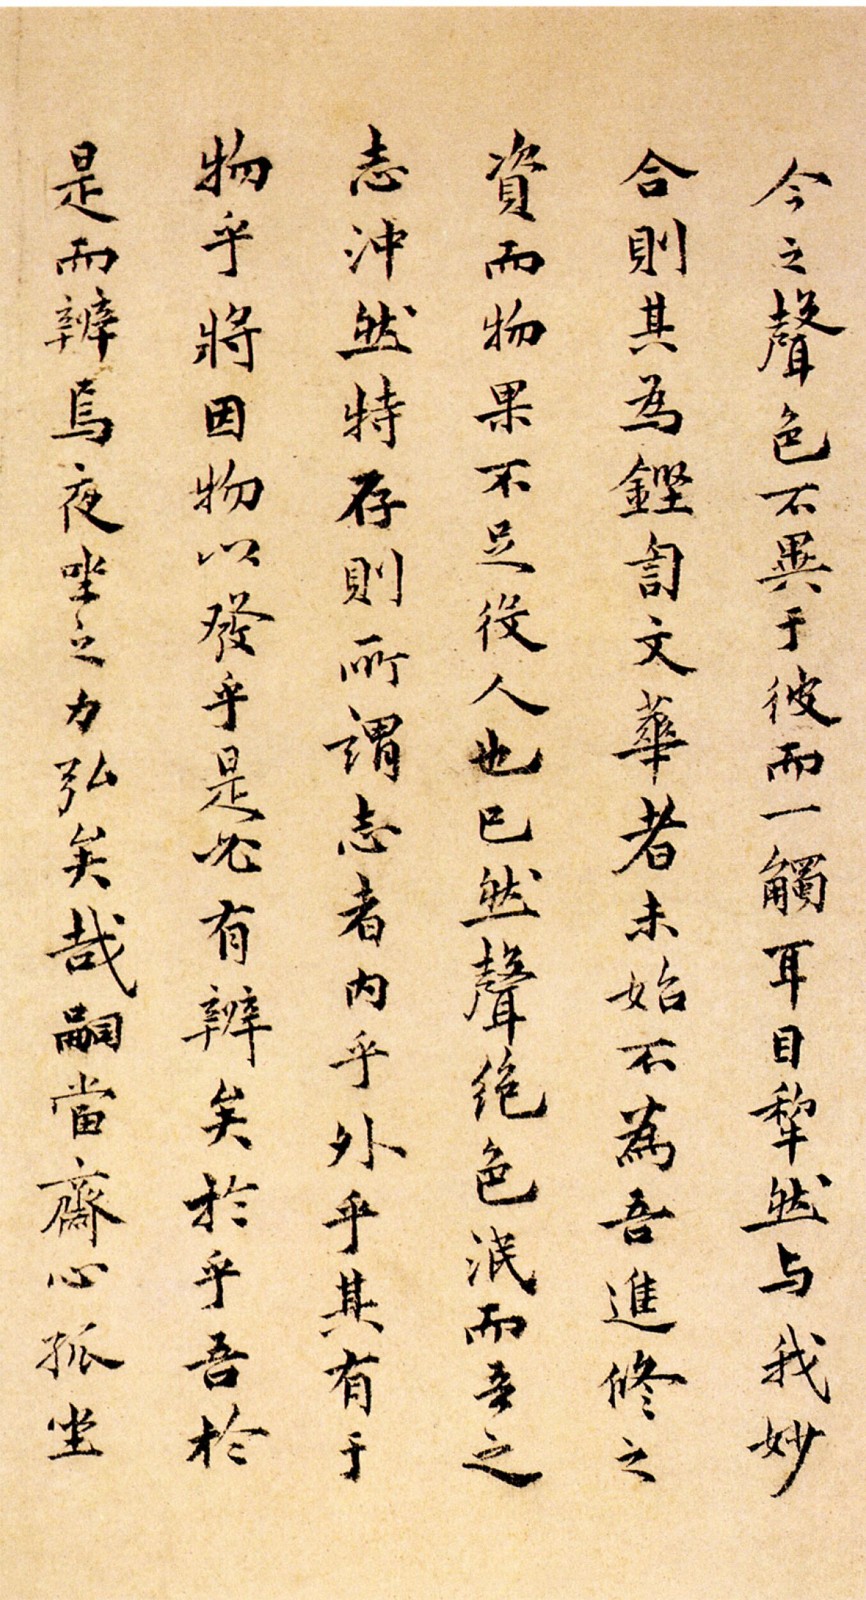 今之聲色不異于彼而一觸耳目犂然与我妙
合則其為鏗訇文華者未始不為吾進修之
資而物果不足役人也已然聲絶色泯而吾之
志沖然特存則所謂志者內乎外乎其有于
物乎將因物以發乎是必有辨矣於乎吾於
是而辨焉夜坐之力弘矣哉嗣當齋心孤坐